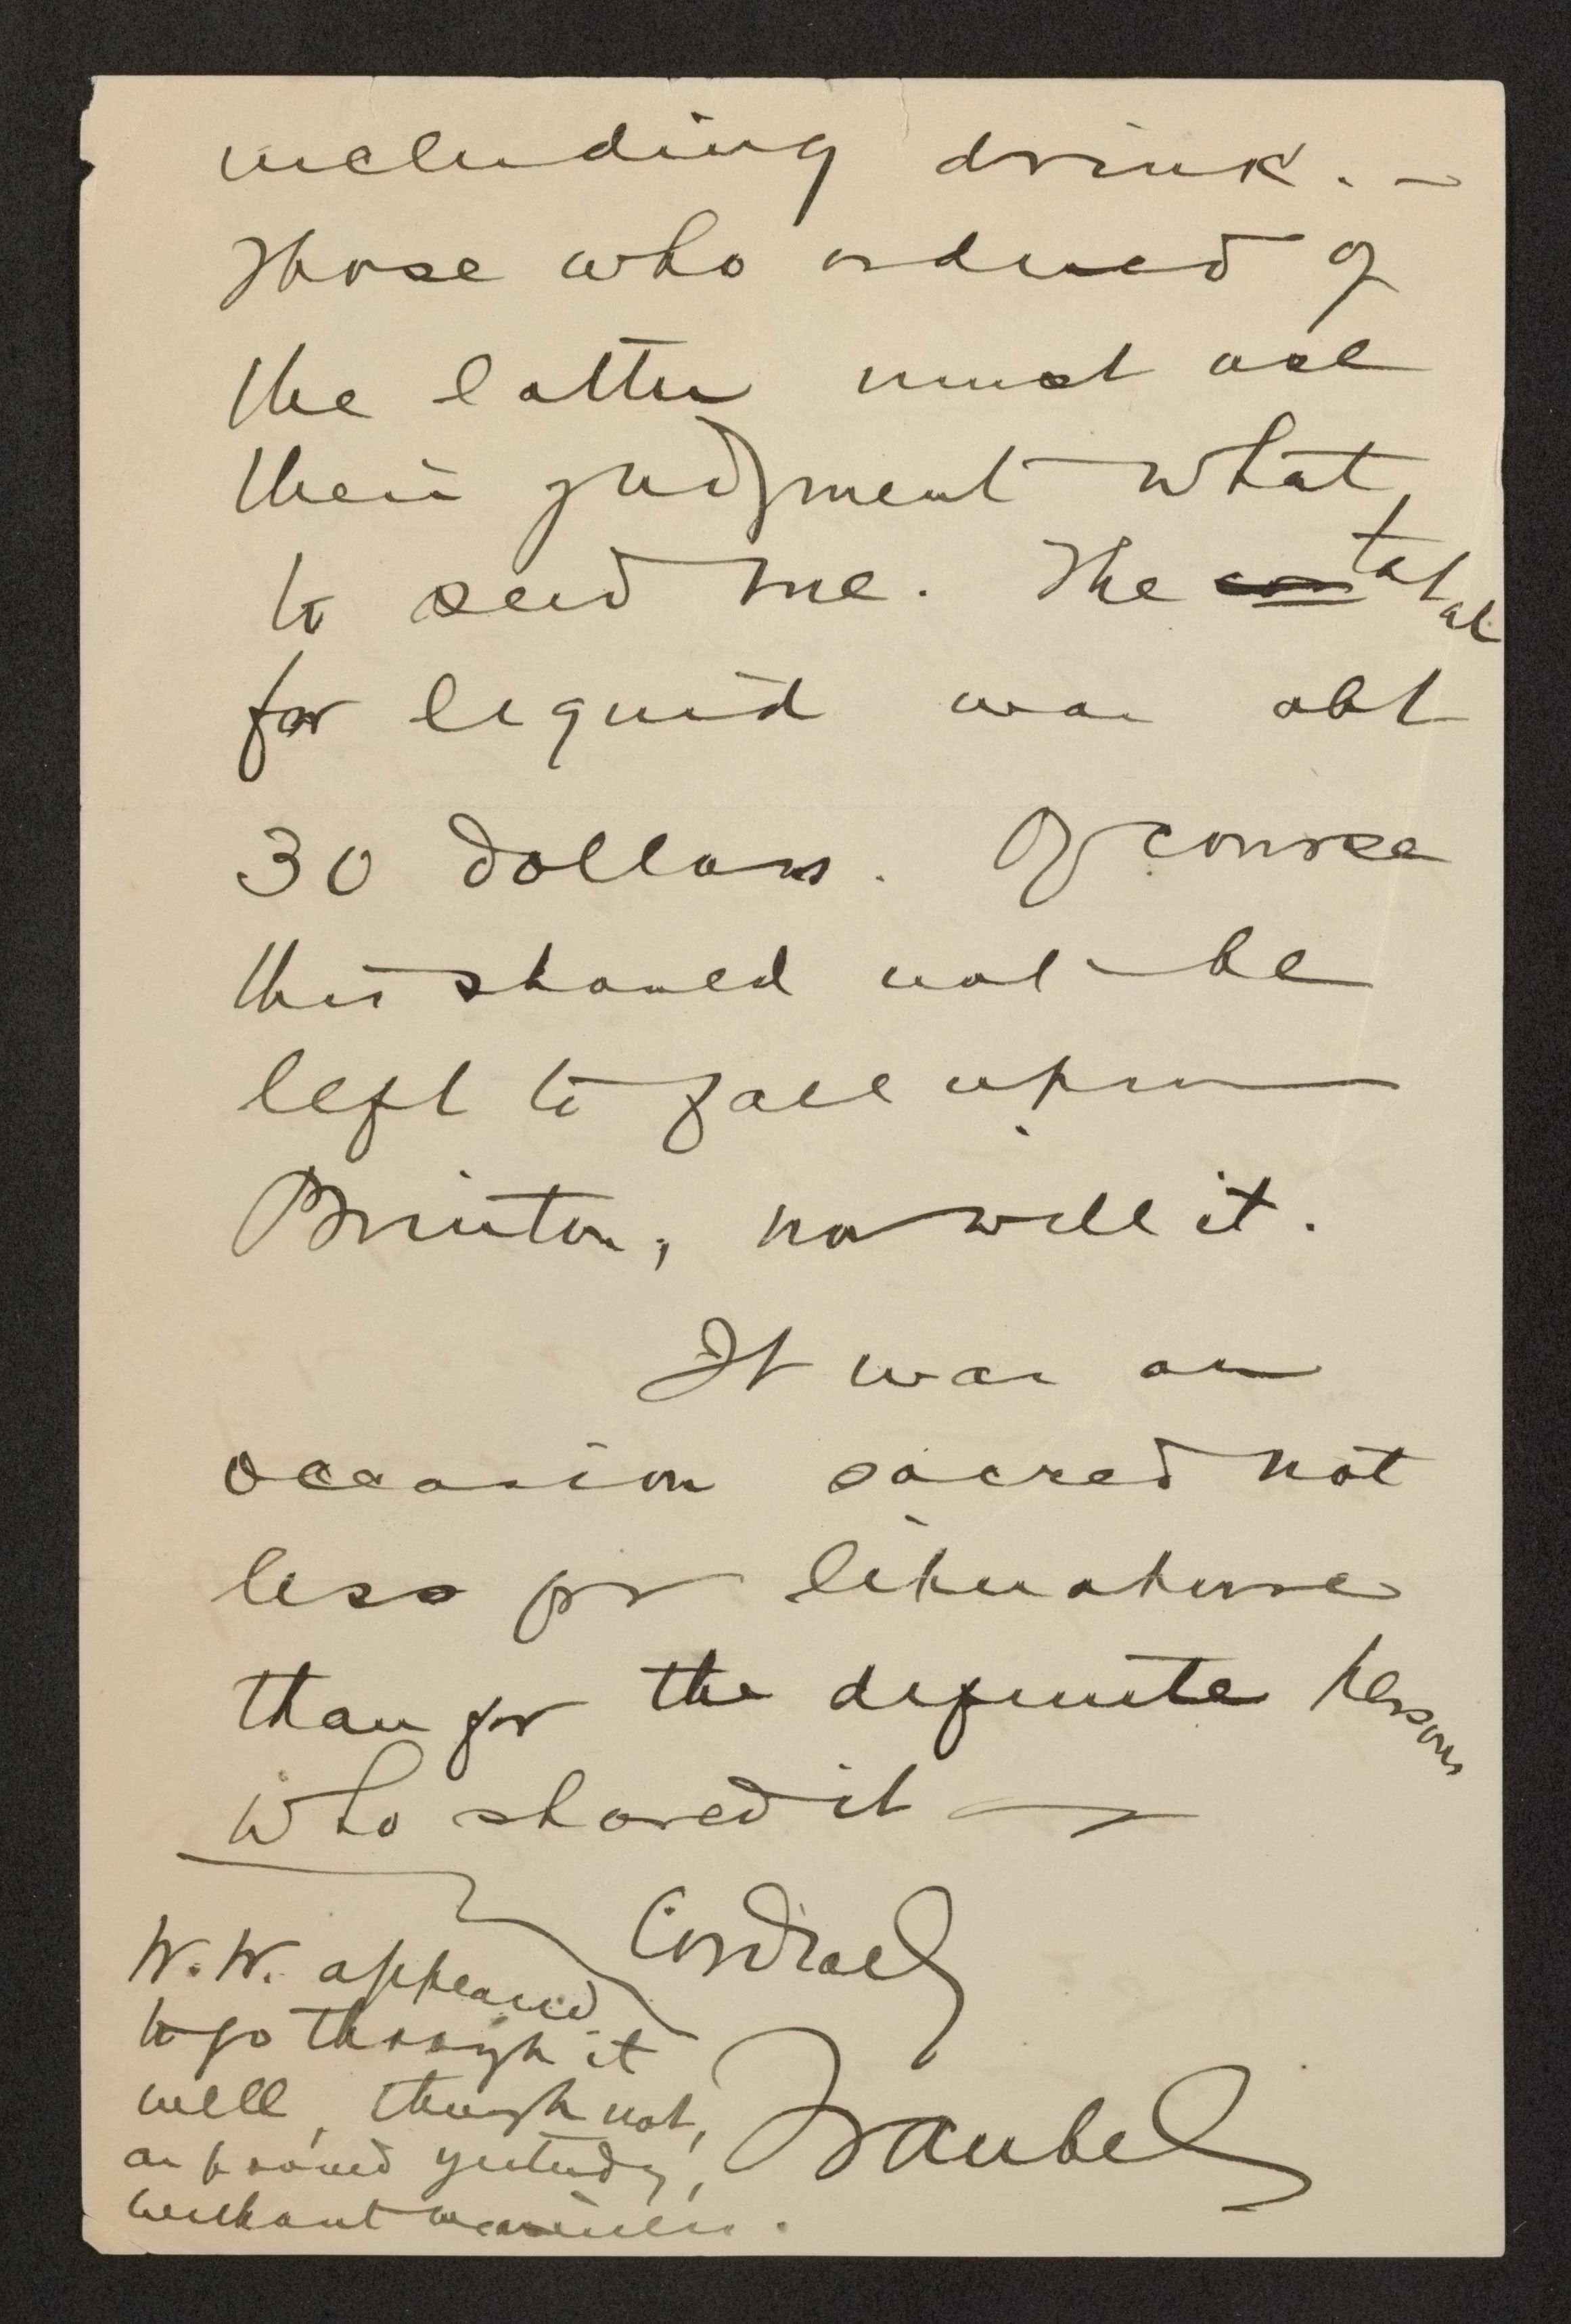 including drink. —
Those who ordered of
the latter must use
their judgment what
to send me. The total
for liquid was abt
30 dollars. Of course
this should not be
left to fall upon
Brinton, nor will it.
It was an
occasion sacred not
less for literature
than for the definite persons
who shared it —
Cordially
Traubel
W.W. appeared
to go through it
well, though not,
as proved yesterday,
without weariness.